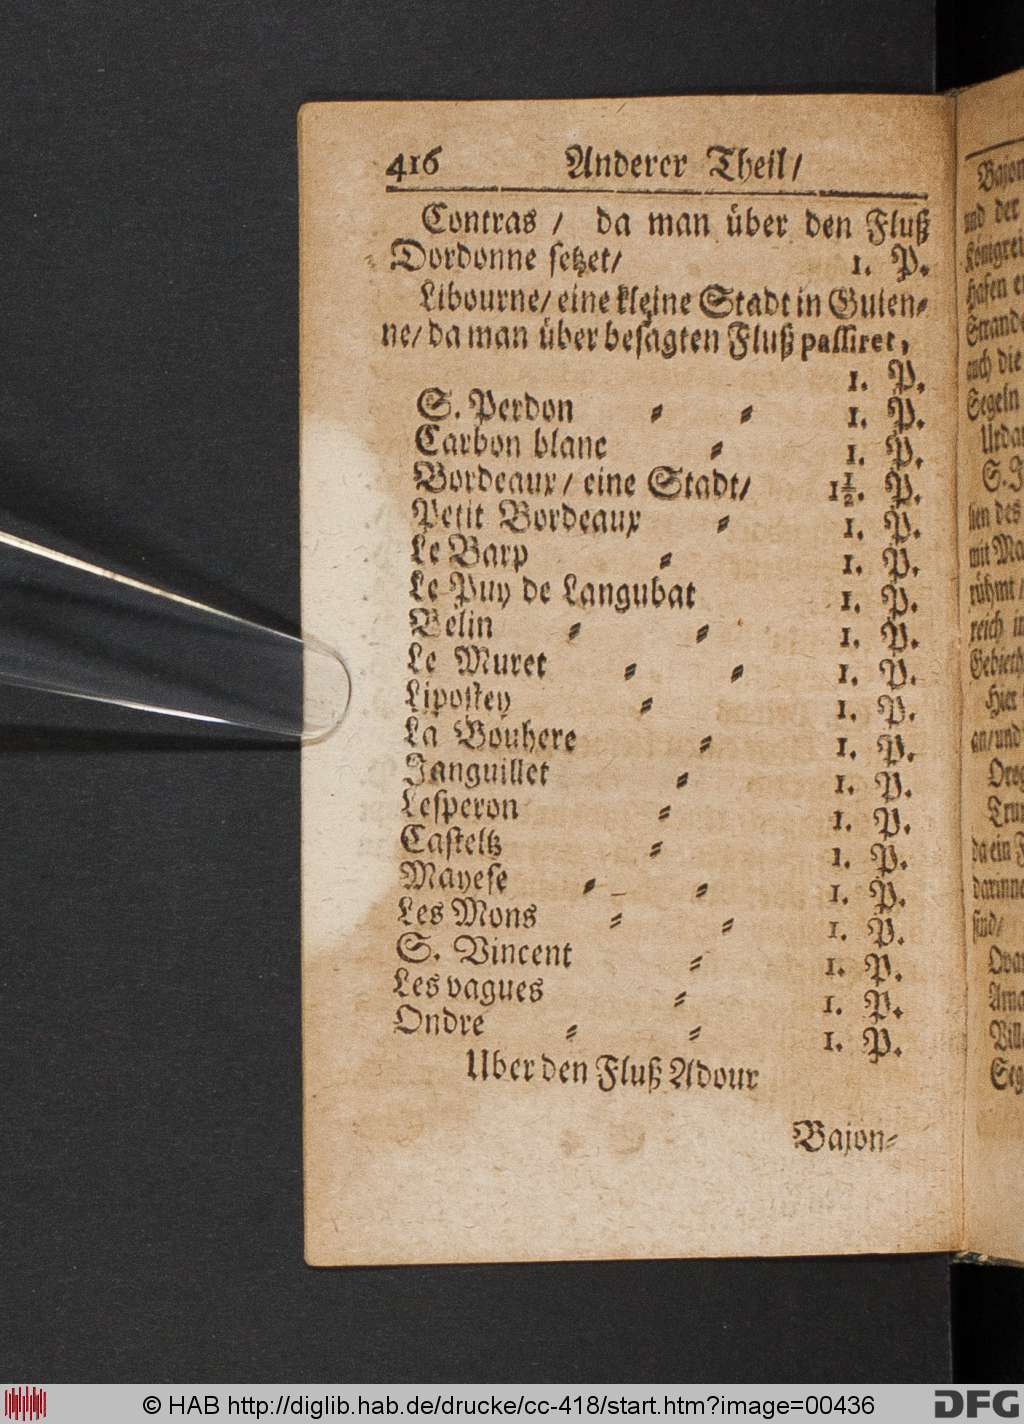 416 Anderer Theil/
Contras / da man über den Fluß
Dordonne setzet/ 1. P.
Libourne/ eine kleine Stadt in Guien-
ne/ da man über besagten Fluß passiret,
1. P.
S. Perdon = = 1. P.
Carbon blanc = 1. P.
Bordeaux/ eine Stadt/ 1½. P.
Petit Bordeaux = 1. P.
Le Barp = 1. P.
Le Puy de Langubat 1. P.
Belin = = 1. P.
Le Muret = = 1. P.
Lipostey = 1. P.
La Bouhere = 1. P.
Janguillet = 1. P.
Lesperon = 1. P.
Casteltz = 1. P.
Mayese = = 1. P.
Les Mons = = 1. P.
S. Vincent = 1. P.
Les vagues = 1. P.
Ondre = = 1. P.
Uber den Fluß Adour
Bajon-
und der
auch die
Segeln
mit
rühmt/
reich
Hier
an/und
da ein
sind/
© HAB http://diglib.hab.de/drucke/cc-418/start.htm?image=00436
DFG